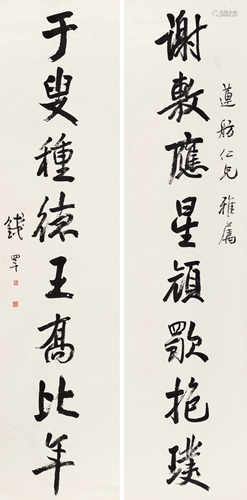 蓮舫仁兄雅屬
谢敷應星顧歌抱璞
于叟種德王高比年
錢罕